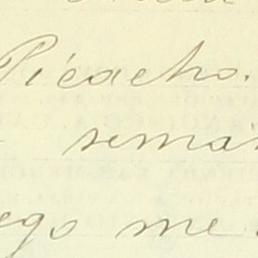 Picacho.
semá
ego me